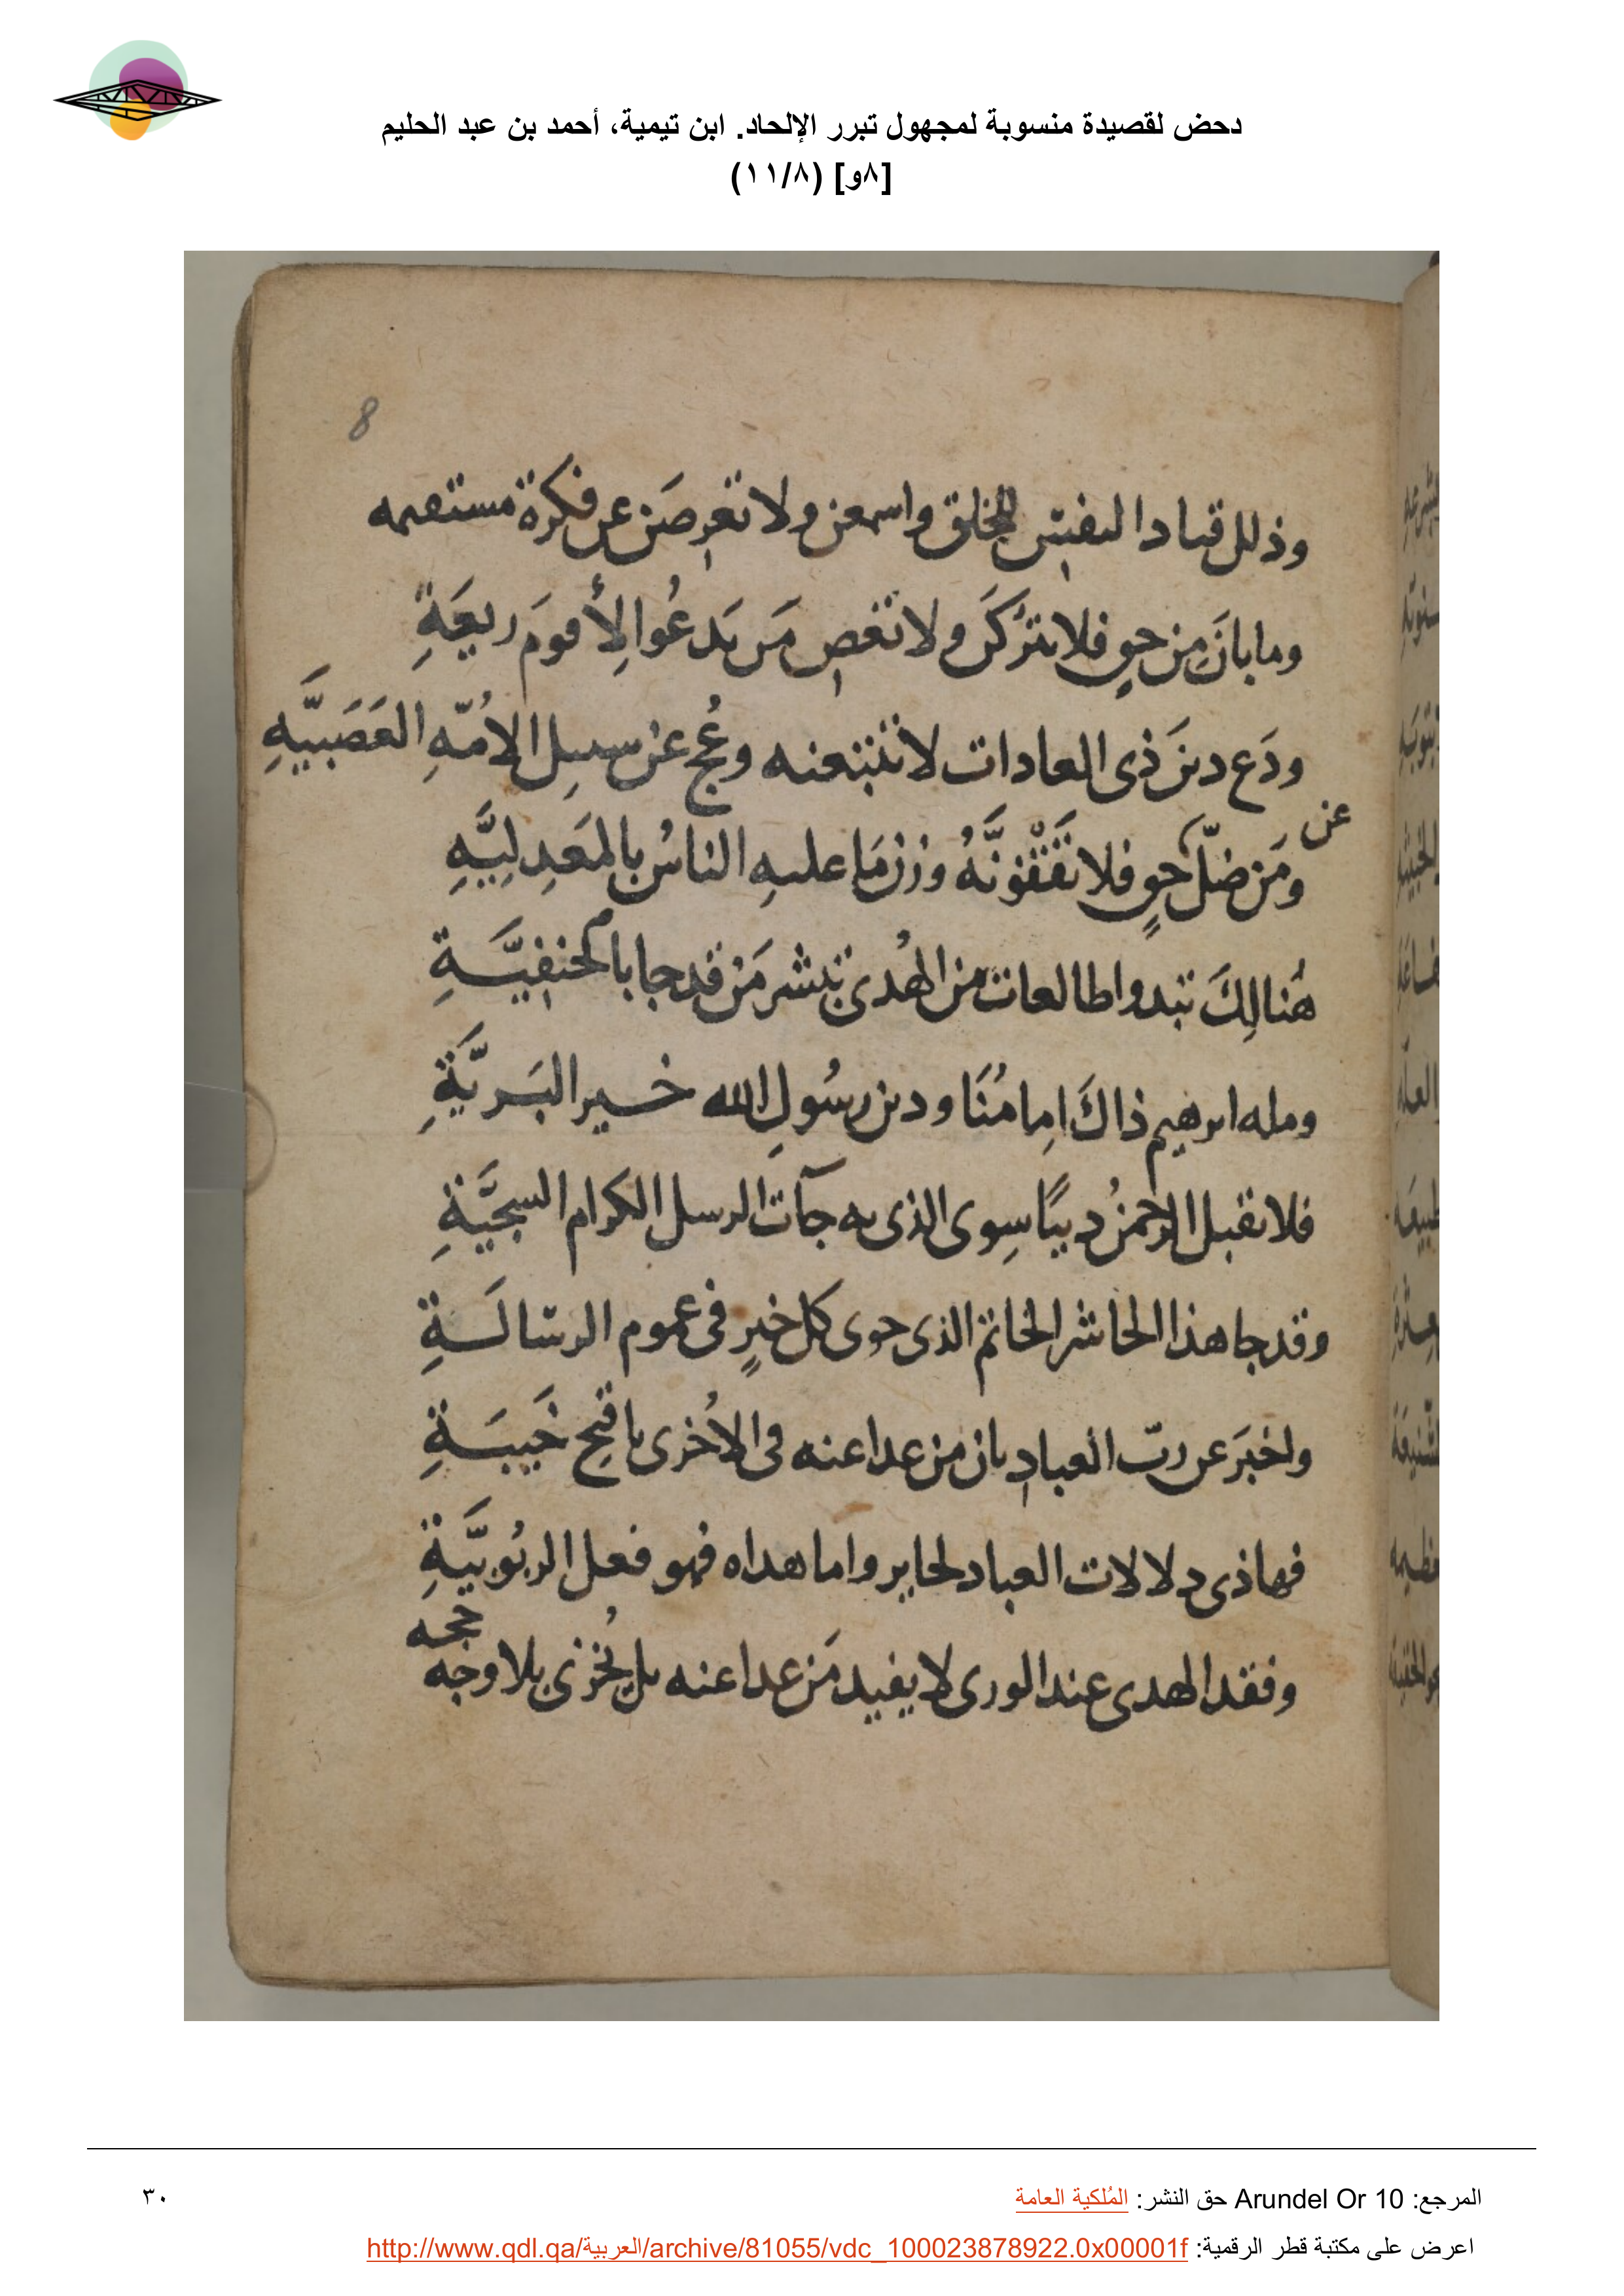 دحض لقصيدة منسوبة لمجهول تبرر الإلحاد. ابن تيمية، أحمد بن عبد الحليم
[٨و] (١١/٨)
8
وذلل قياد النفس للخلق واسمعن ولا تعرضن عن فكرة مستقيمه
وما بانَ من حق فلا تتركَن ولا تعصِ مَن يَدعُوا لِأقومَ ريعَةِ
ودَع دينَ ذى العادات لا تتبعنه وعُج عن سبيل الاُمّهِ العَصَبيَّهِ
عن
ومَن ضلّ حقٍ فلا تَقْفُونَّهُ وزن مَا عليهِ الناسُ بالمَعدِلِيَّهِ
هُنالِكَ تبدوا طالعات من الهُدى تبشر مَن قد جا بالحنفيَّةِ
ومله ابرهيم ذاكَ اِمامُنَا ودين رسُولِ الله خير البَريَّةِ
فلا يقبل الرحمنُ ديناً سِوى الذى به جآت الرسل الكرام السجيَّةِ
وقد جا هذا الحاشر الخاتم الذى حوى كل خيرٍ فى عموم الرسالَةِ
واخبَر عن ربّ العبادِ بان من عدا عنه فى الاُخرى باقبح خَيبَةِ
فهاذى دلالات العباد لحاير واما هداه فهو فعل الربُوبيَّةِ
حجه
وفقد الهدى عند الورى لا يفيد مَن عدا عنه بل يُخزى بلا وجه
المرجع: Arundel Or 10 حق النشر: المُلكية العامة
٣٠
اعرض على مكتبة قطر الرقمية: http://www.qdl.qa/العربية/archive/81055/vdc_100023878922.0x00001f